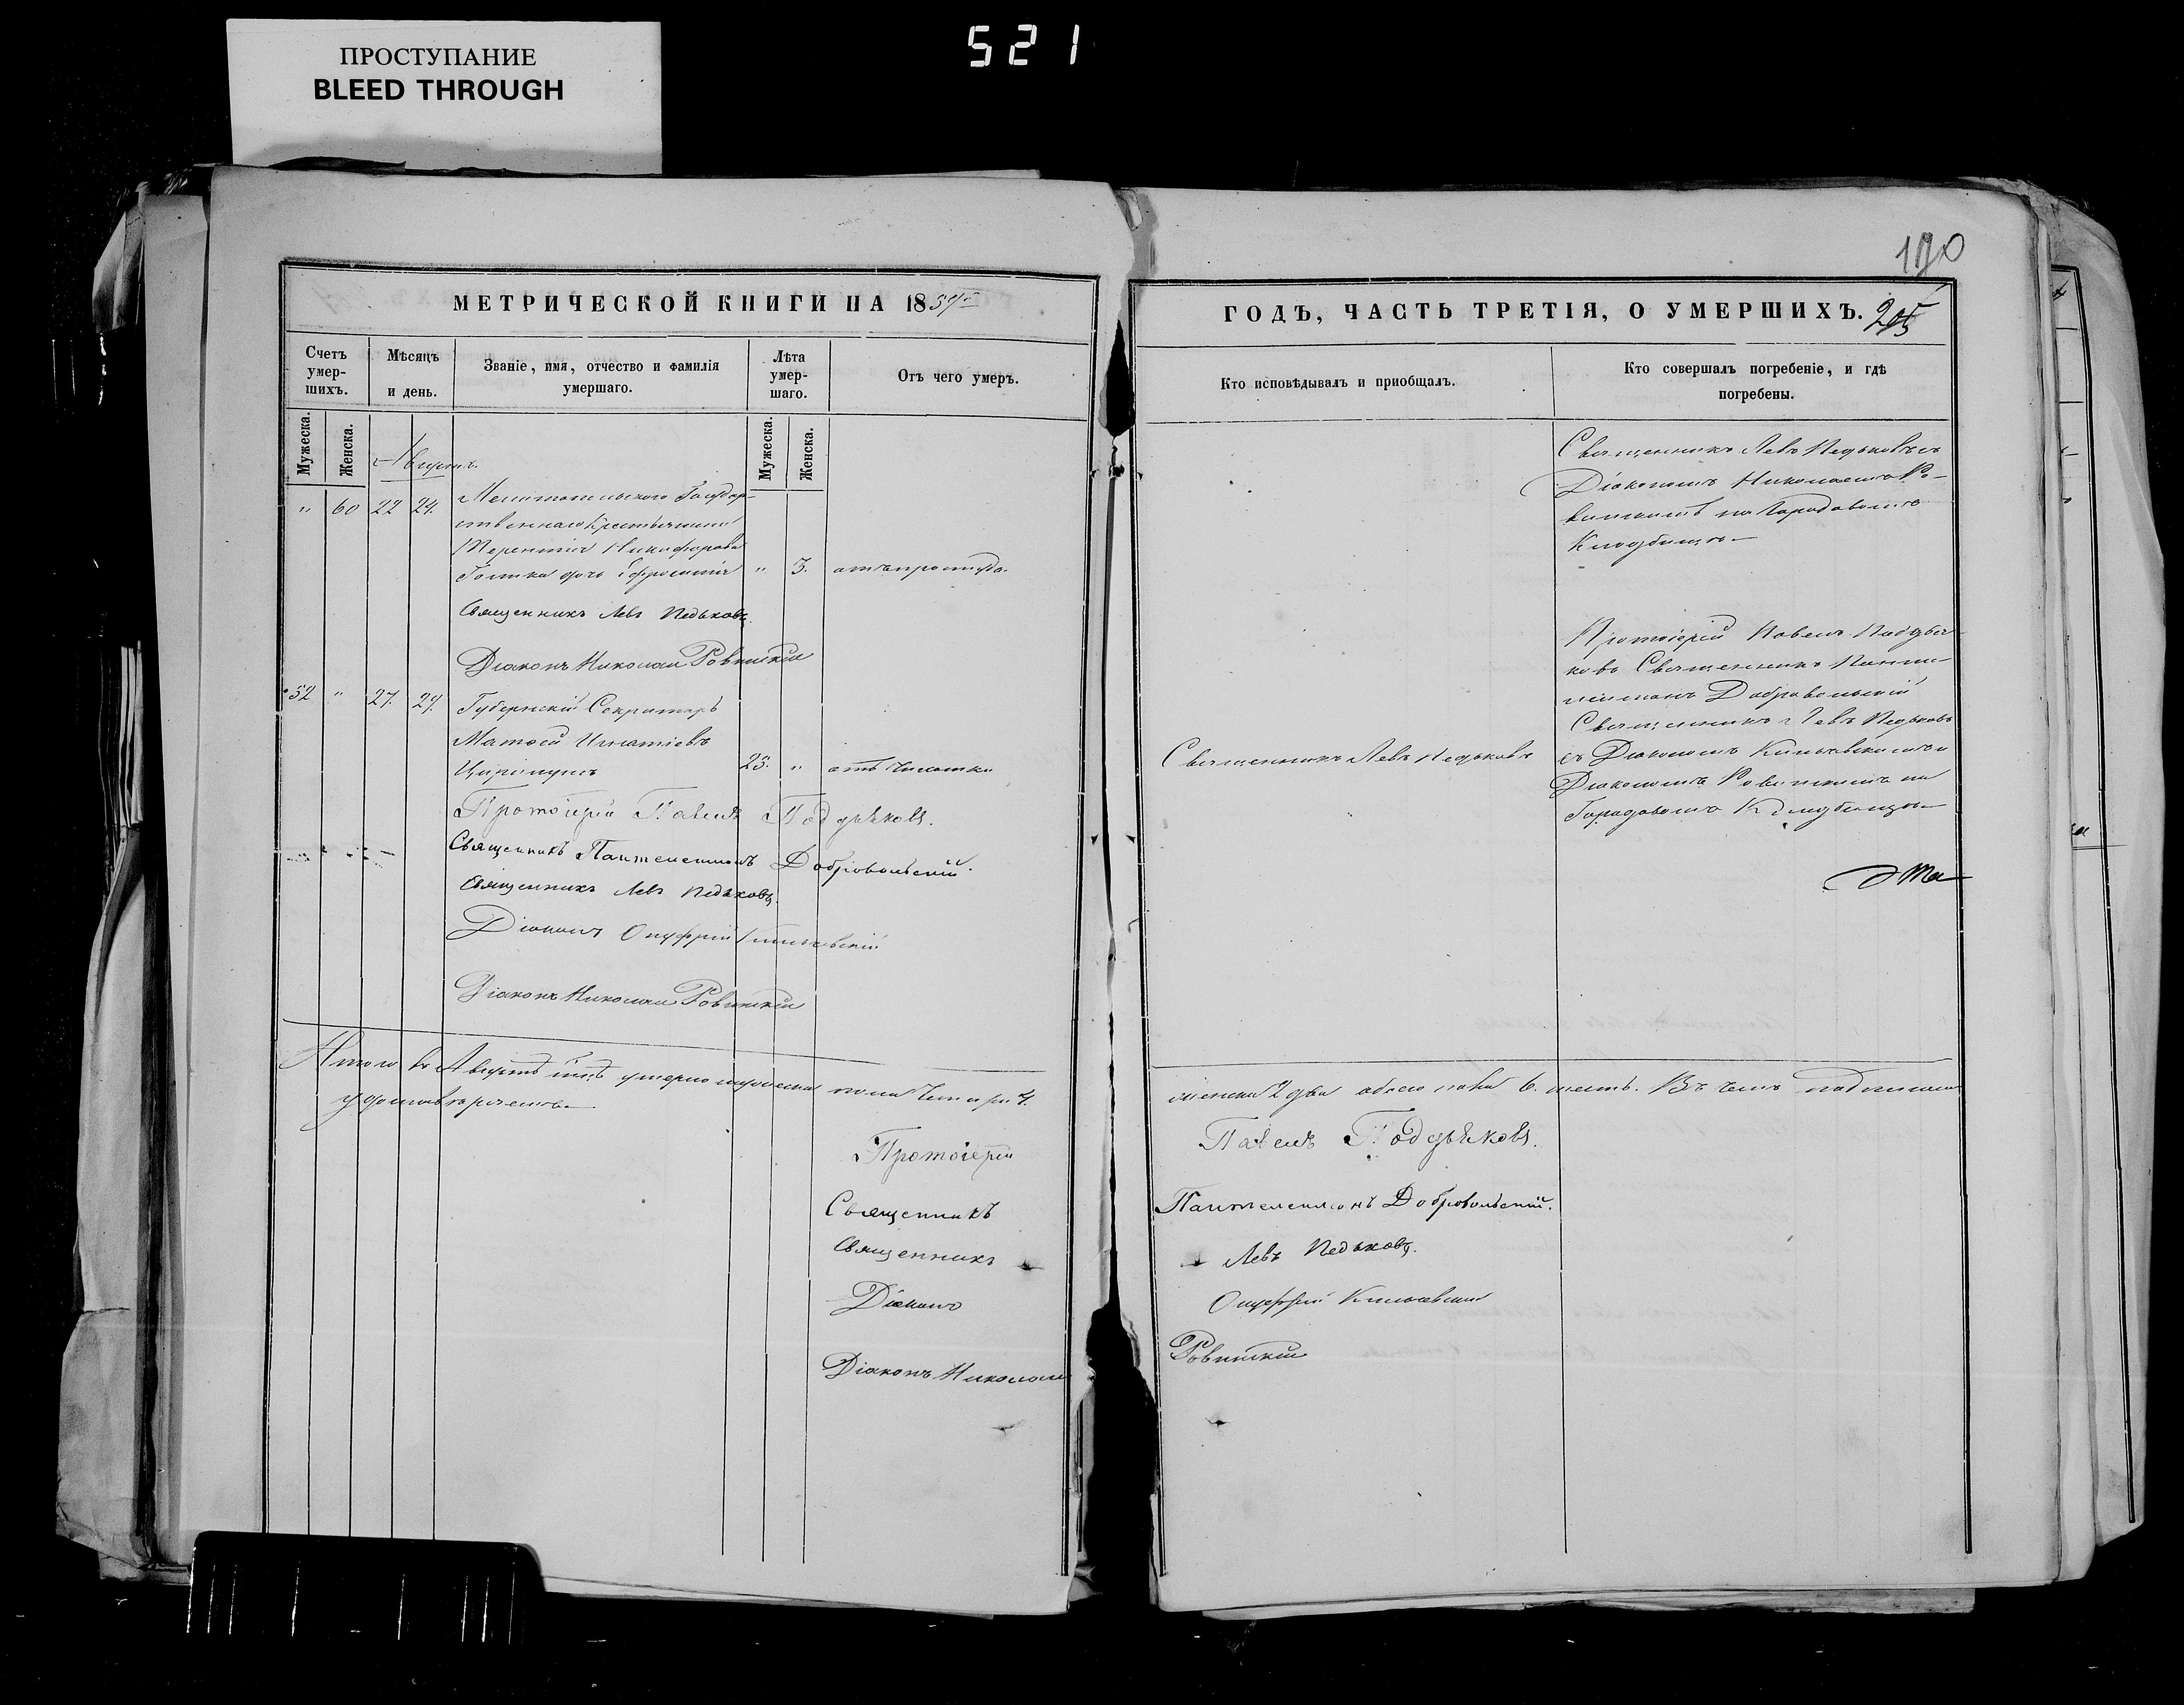 ПРОСТУПАНИЕ
BLEED THROUGH
521
190
МЕТРИЧЕСКОЙ КНИГИ НА 1859
ГОДЪ, ЧАСТЬ ТРЕТІЯ, О УМЕРШИХЪ.
Счетъ умер-шихъ.
Мѣсяцъ и день.
Званіе, имя, отчество и фамилія умершаго.
Лѣта умер-шаго.
Отъ чего умеръ.
Кто исповѣдывалъ и приобщалъ.
Кто совершалъ погребеніе, и гдѣ погребены.
Мужеска.
Женска.
Мужеска.
Женска.
Августъ.
" 60 22 24.
Государ-
ственнаго Крестьянина
Терентія Никифорова
дочь Ефросинія " 3. отъ простуды
Священникъ Левъ Педьковъ съ
Діакономъ Николаемъ Ро-
винскимъ на Городовомъ
Кладбищѣ
Священникъ Левъ Педьковъ.
Діаконъ Николай Ровинскій
52 " 27. 29.
Губернскій Секретарь
Матѳей Игнатіевъ
23. " отъ чахотки
Священникъ Левъ Педьковъ
Протоіерей Павелъ Поддья-
ковъ Священникъ Панте-
леимонъ Добровольскій
Священникъ Левъ Педьковъ
съ Діакономъ Кильчевскимъ и
Діакономъ Ровинскимъ на
Городовомъ Кладбищѣ
Протоіерей Павелъ Поддьяковъ.
Священникъ Пантелеимонъ Добровольскій.
Священникъ Левъ Педьковъ.
Діаконъ Онуфрій Кильчевскій
Діаконъ Николай Ровинскій
Итого въ Августѣ м-цѣ умерло мужеска пола четыре 4.
женска 2 два обоего пола 6. шесть. Въ чемъ подписомъ
удостовѣряемъ
Протоіерей Павелъ Поддьяковъ.
Священникъ Пантелеимонъ Добровольскій.
Священникъ Левъ Педьковъ.
Діаконъ Онуфрій Кильчевскій
Діаконъ Николай Ровинскій